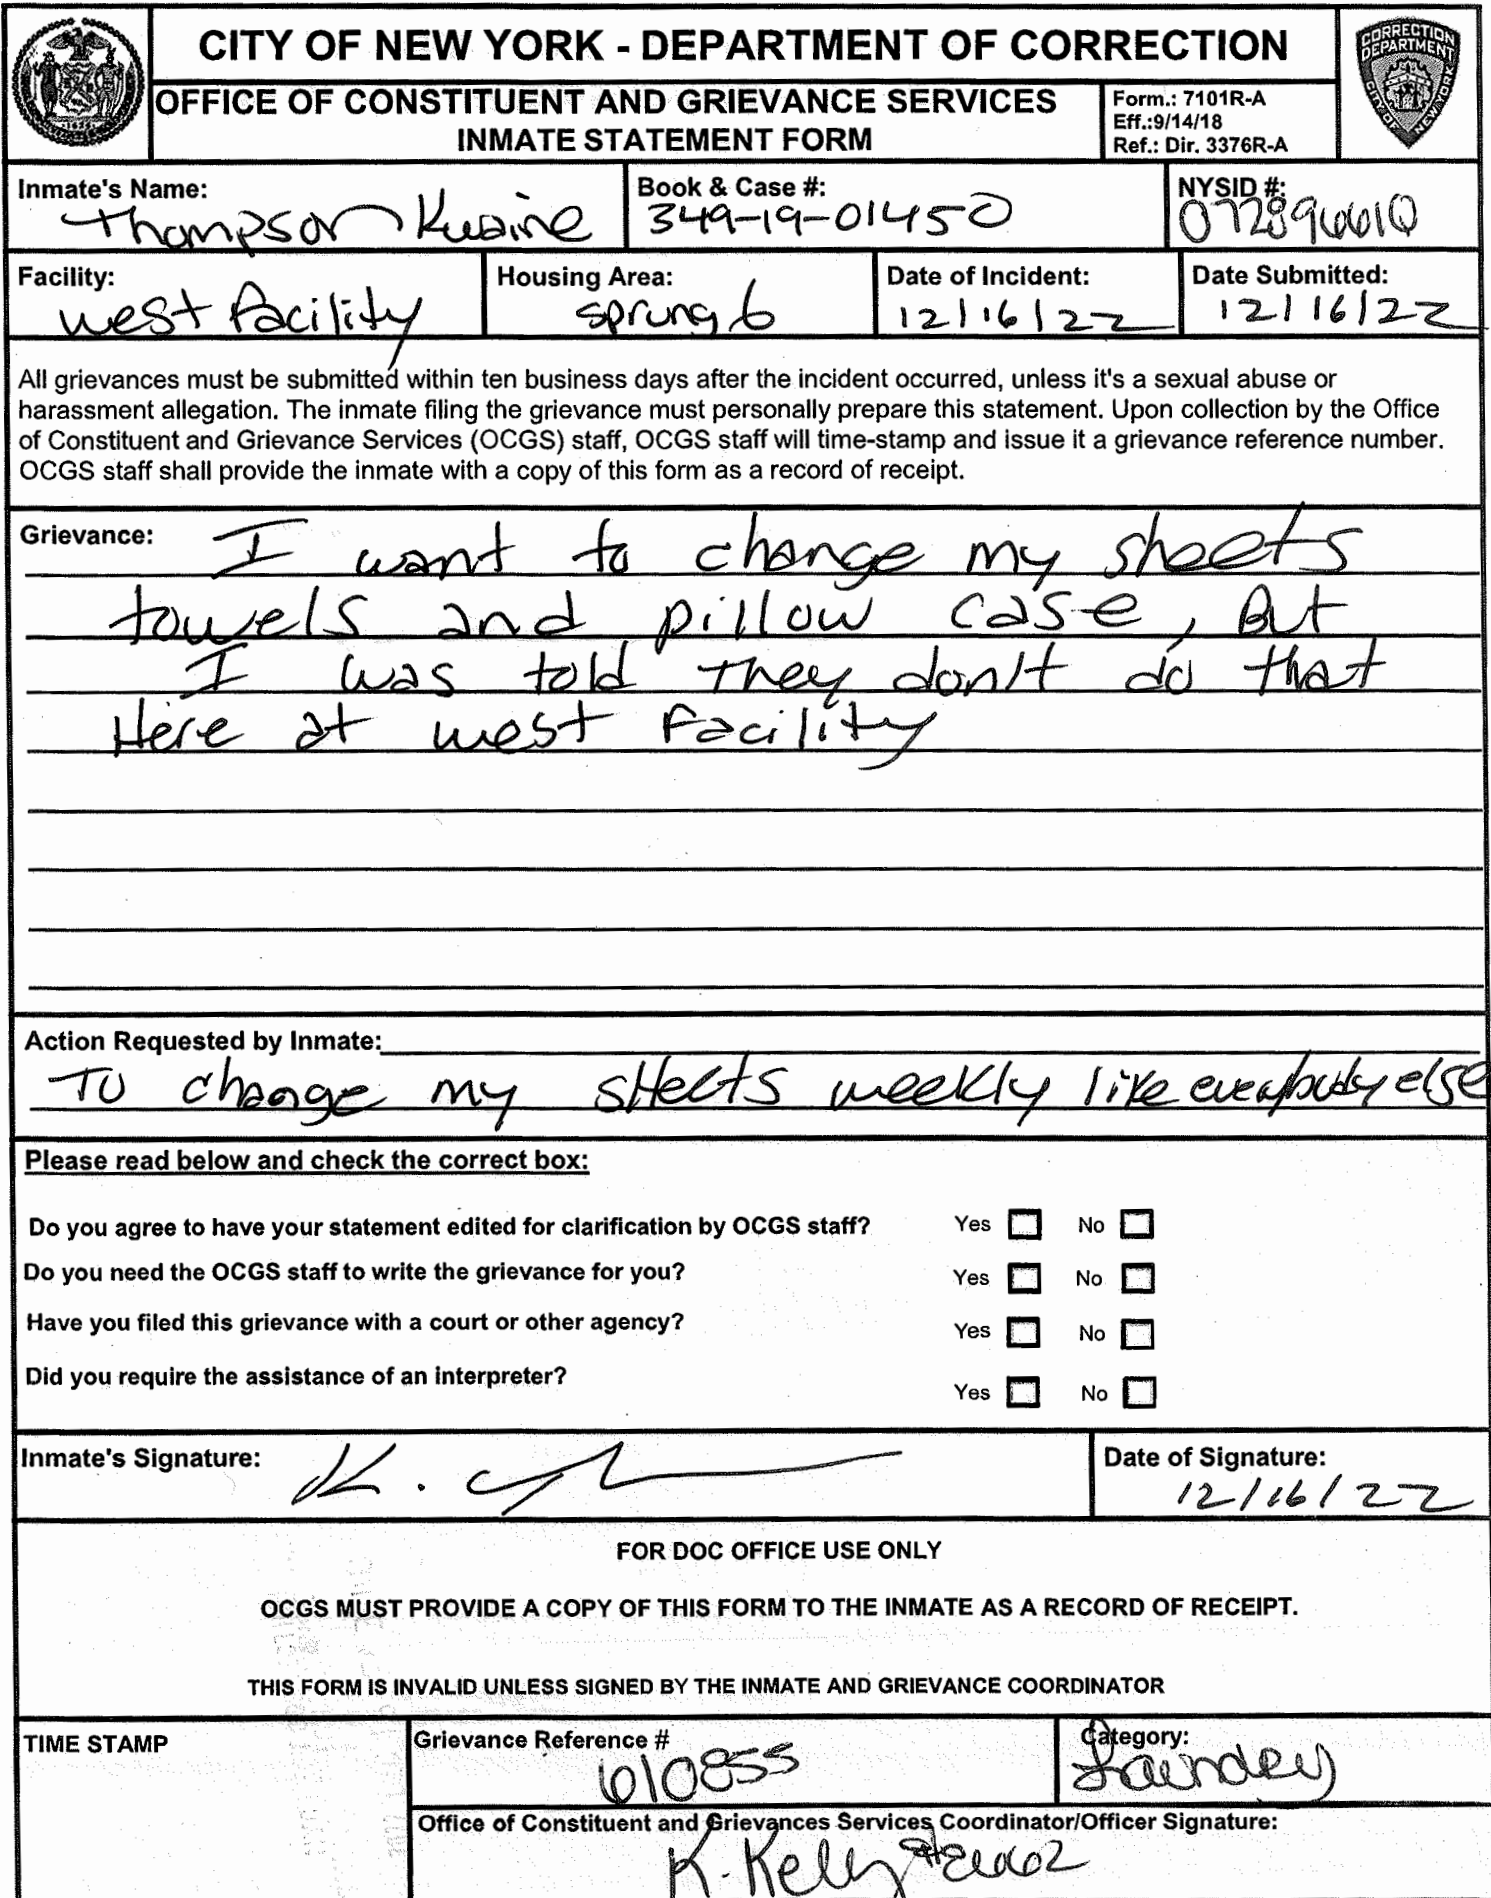 CITY OF NEW YORK - DEPARTMENT OF CORRECTION
CORRECTION
DEPARTMENT
CITY OF NEW YORK
OFFICE OF CONSTITUENT AND GRIEVANCE SERVICES
INMATE STATEMENT FORM
Form.: 7101R-A
Eff.:9/14/18
Ref.: Dir. 3376R-A
Inmate's Name:
Thompson Kwaine
Book & Case #:
349-19-01450
NYSID #:
Facility:
west facility
Housing Area:
sprung 6
Date of Incident:
12/16/22
Date Submitted:
12/16/22
All grievances must be submitted within ten business days after the incident occurred, unless it's a sexual abuse or
harassment allegation. The inmate filing the grievance must personally prepare this statement. Upon collection by the Office
of Constituent and Grievance Services (OCGS) staff, OCGS staff will time-stamp and issue it a grievance reference number.
OCGS staff shall provide the inmate with a copy of this form as a record of receipt.
Grievance: I want to change my sheets
towels and pillow case, But
I was told they don't do that
Here at west facility
Action Requested by Inmate:
To change my sheets weekly like everybody else
Please read below and check the correct box:
Do you agree to have your statement edited for clarification by OCGS staff? Yes No
Do you need the OCGS staff to write the grievance for you? Yes No
Have you filed this grievance with a court or other agency? Yes No
Did you require the assistance of an interpreter? Yes No
Inmate's Signature:
Date of Signature:
12/16/22
FOR DOC OFFICE USE ONLY
OCGS MUST PROVIDE A COPY OF THIS FORM TO THE INMATE AS A RECORD OF RECEIPT.
THIS FORM IS INVALID UNLESS SIGNED BY THE INMATE AND GRIEVANCE COORDINATOR
TIME STAMP
Grievance Reference #
610855
Category:
Laundry
Office of Constituent and Grievances Services Coordinator/Officer Signature:
K. Kelly